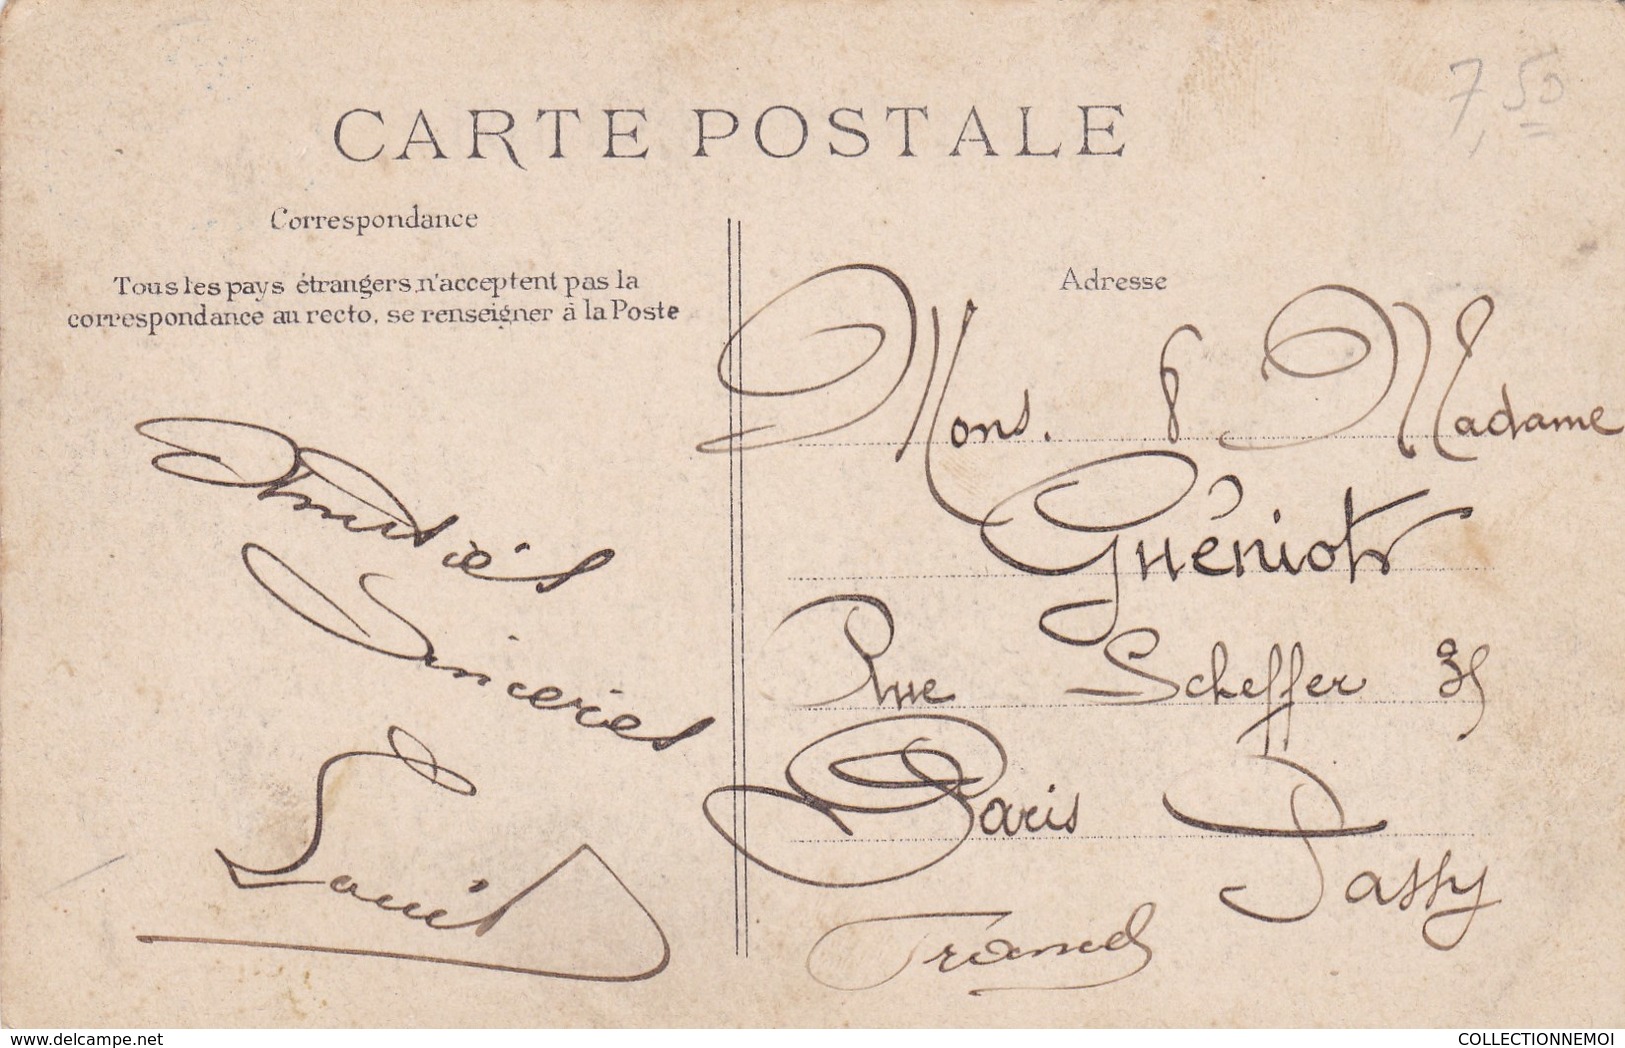 7,50
CARTE POSTALE
Correspondance
Tous les pays étrangers n'acceptent pas la
correspondance au recto, se renseigner à la Poste
Amitiés
Sincères
Louis
Adresse
Mons. & Madame
Guéniot
Rue Scheffer 35
Paris Passy
France
delcampe.net
COLLECTIONNEMOI